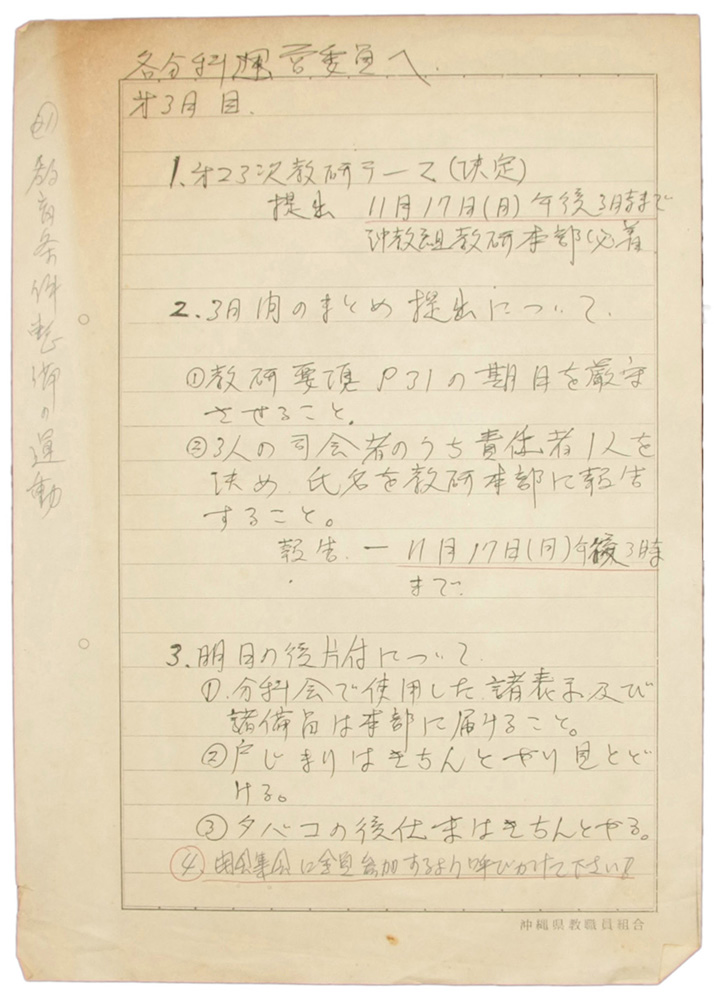 各分科運営委員へ
オ3日目.
1. オ23次教研テーマ(決定)
提出 11月17日(月)午後3時まで
沖教組教研本部必着
2. 3日間のまとめ提出について.
①教研要項P31の期日を厳守
させること.
②3人の司会者のうち責任者1人を
決め、氏名を教研本部に報告
すること。
報告. ー 11月17日(月)午後3時
まで.
3. 明日の後片付について
①. 分科会で使用した諸表示及び
諸備品は本部に届けること。
②戸じまりはきちんとやり見とど
ける。
③タバコの後仕末はきちんとやる。
④. 閉会集会に全員参加するよう呼びかけて下さい!!
沖縄県教職員組合
㉑教育条件整備の運動